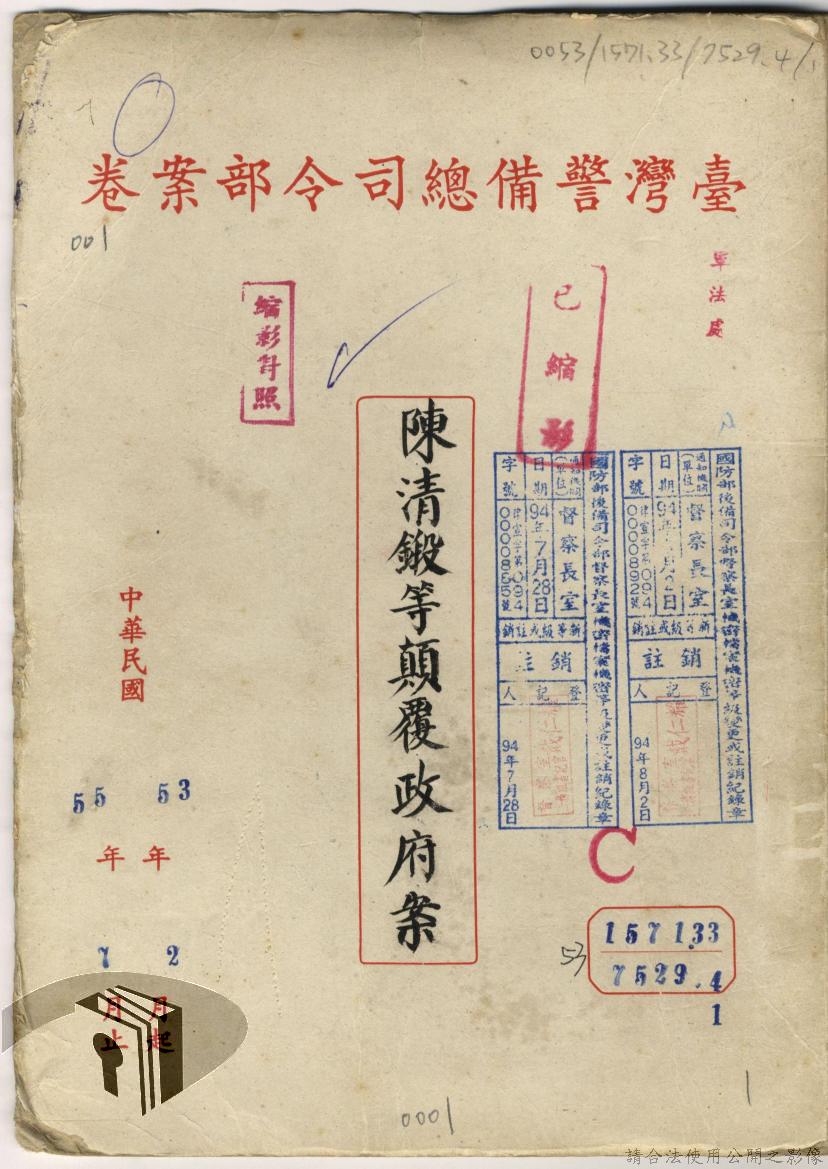 0053/1571.33/7529.4/1
臺灣警備總司令部案卷
001
軍法處
已縮影
縮影對照
國防部後備司令部督察長室機密檔案機密等級變更或註銷紀錄章
通知機關(單位)
督察長室
日期
94年 月2日
字號
律宣字第094
0000892號
新等級或註銷
註銷
登記人
94年8月2日
國防部後備司令部督察長室機密檔案機密等級變更或註銷紀錄章
通知機關(單位)
督察長室
日期
94年7月28日
字號
律宣字第094
0000865號
新等級或註銷
註銷
登記人
94年7月28日
C
陳清鍛等顛覆政府案
中華民國
53年2月起
55年7月止
53
1571.33
7529.4
1
0001
1
請合法使用公開之影像